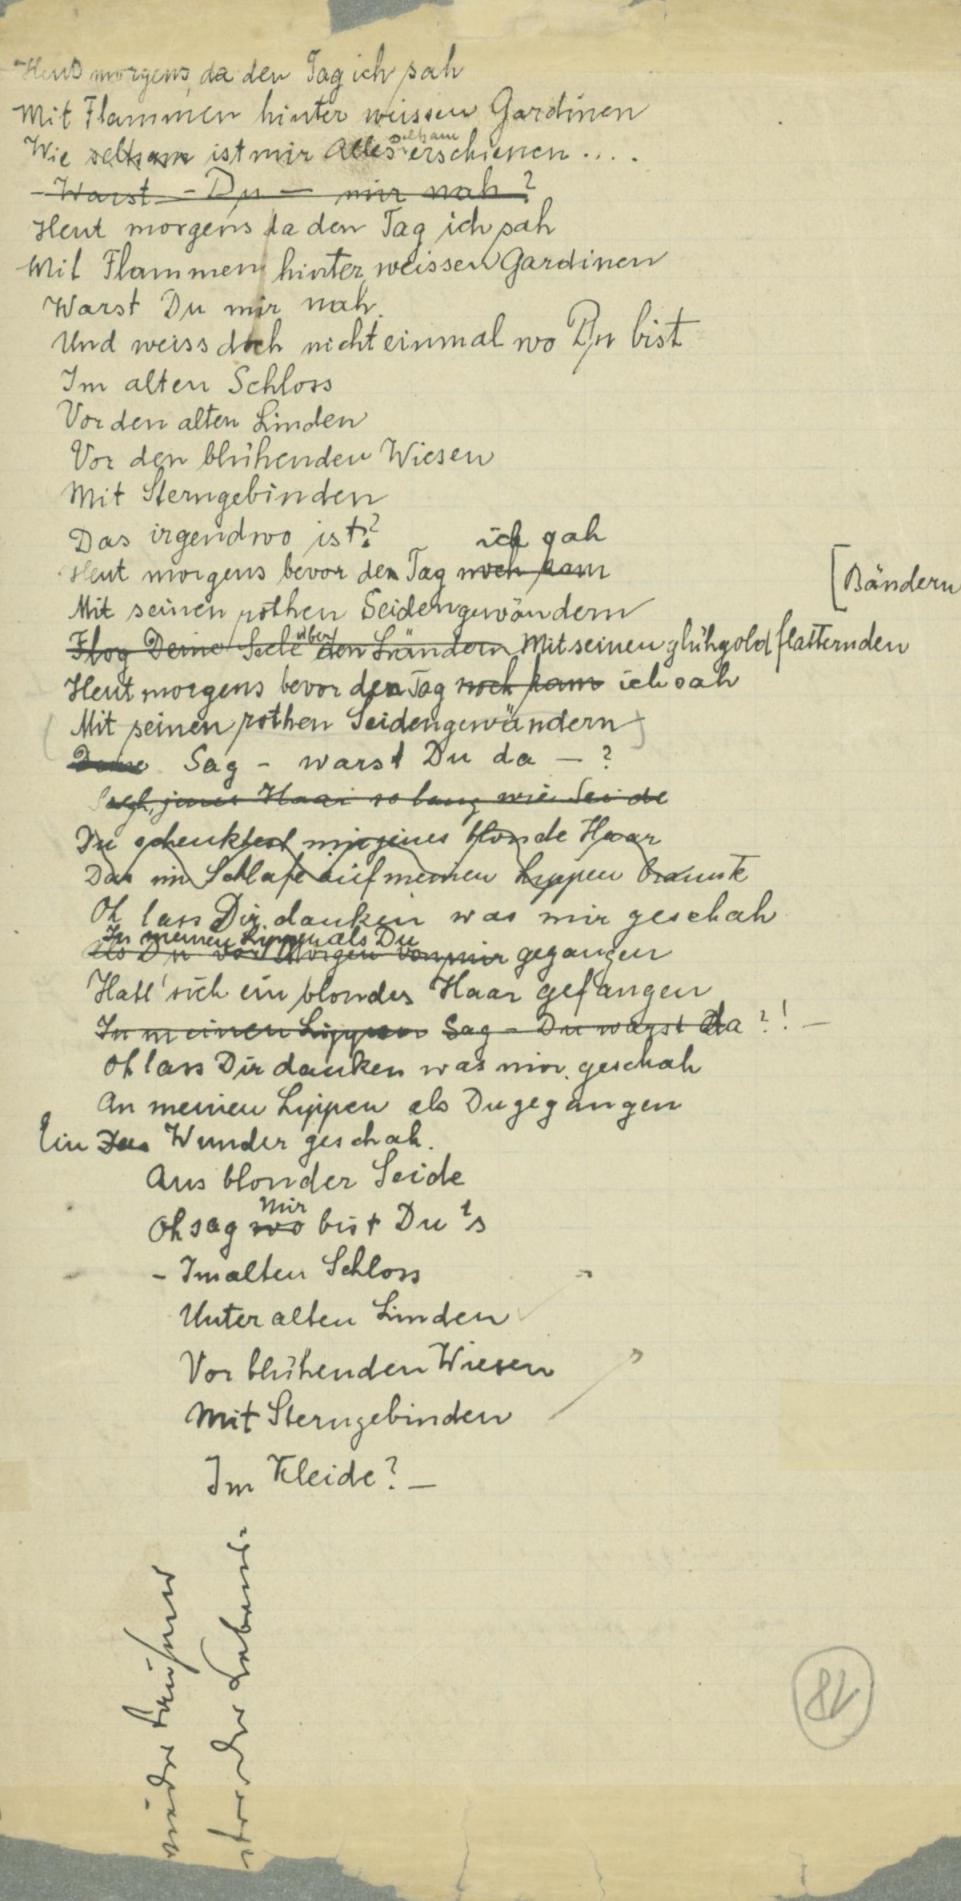 Heut morgens, da den Tag ich sah
Mit Flammen hinter weissen Gardinen
Wie seltsam ist mir Alles seltsam erschienen ....
- Warst - Du - mir nah?
Heut morgens da den Tag ich sah
Mit Flammen hinter weissen Gardinen
Warst Du mir nah.
Und weiss doch nicht einmal wo Du bist
Im alten Schloss
Vor den alten Linden
Vor den blühenden Wiesen
Mit Sterngebinden
Das irgendwo ist?
ich sah
Heut morgens bevor den Tag noch kam
Mit seinen rothen Seidengewändern
[Bändern
Flog Deine Seele über den Ländern Mit seinen glühgold flatternden
Heut morgens bevor den Tag noch kam ich sah
(Mit seinen rothen Seidengewändern)
Deine Sag - warst Du da - ?
jenes Haar so lang wie Seide
Du schenktest mir jenes blonde Haar
Das im Schlafe auf meinen Lippen brannte
Oh lass Dir danken was mir geschah
In meinen Lippen als Du
Als Du vor Morgen von mir gegangen
Hatt' sich ein blondes Haar gefangen
In meinen Lippen Sag - Du warst da ?! -
Oh lass Dir danken was mir geschah
An meinen Lippen als Du gegangen
Ein Das Wunder geschah.
Aus blonder Seide
Oh sag wo mir bist Du's
- Im alten Schloss
Unter alten Linden
Vor blühenden Wiesen
Mit Sterngebinden
Im Kleide? -
82